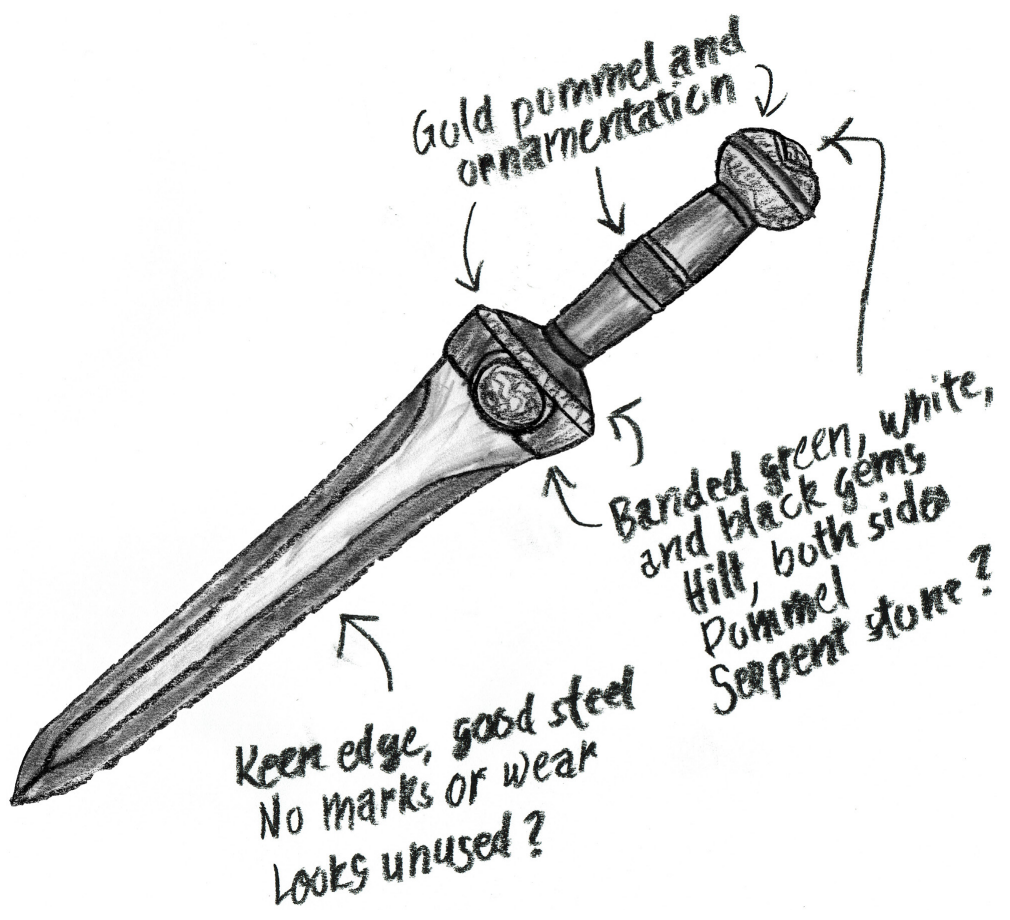 Gold pommel and
ornamentation
Banded green, white,
and black gems
Hilt, both side
Pommel
Serpent stone?
Keen edge, good steel
No marks or wear
Looks unused?